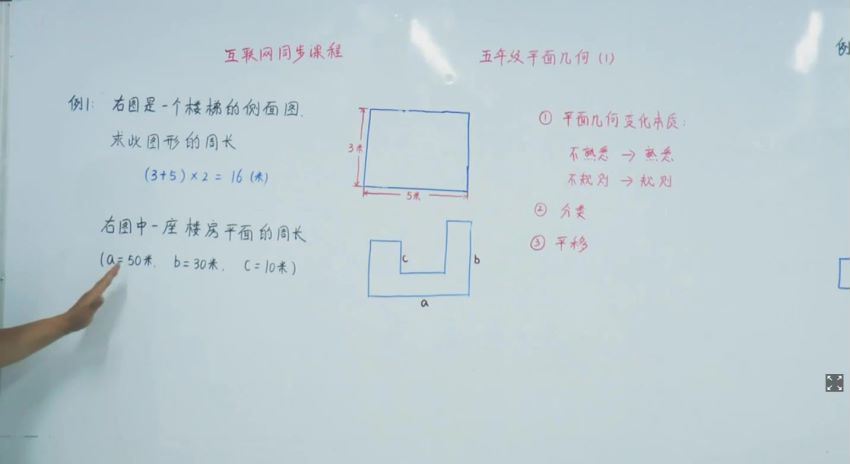 互联网同步课程
五年级平面几何(1)
例1: 右图是一个楼梯的侧面图.
求此图形的周长
(3+5)×2=16(米)
3米
5米
右图中一座楼房平面的周长
(a=50米. b=30米. c=10米)
c
b
a
① 平面几何变化本质:
不熟悉→熟悉
不规则→规则
② 分类
③ 平移
例